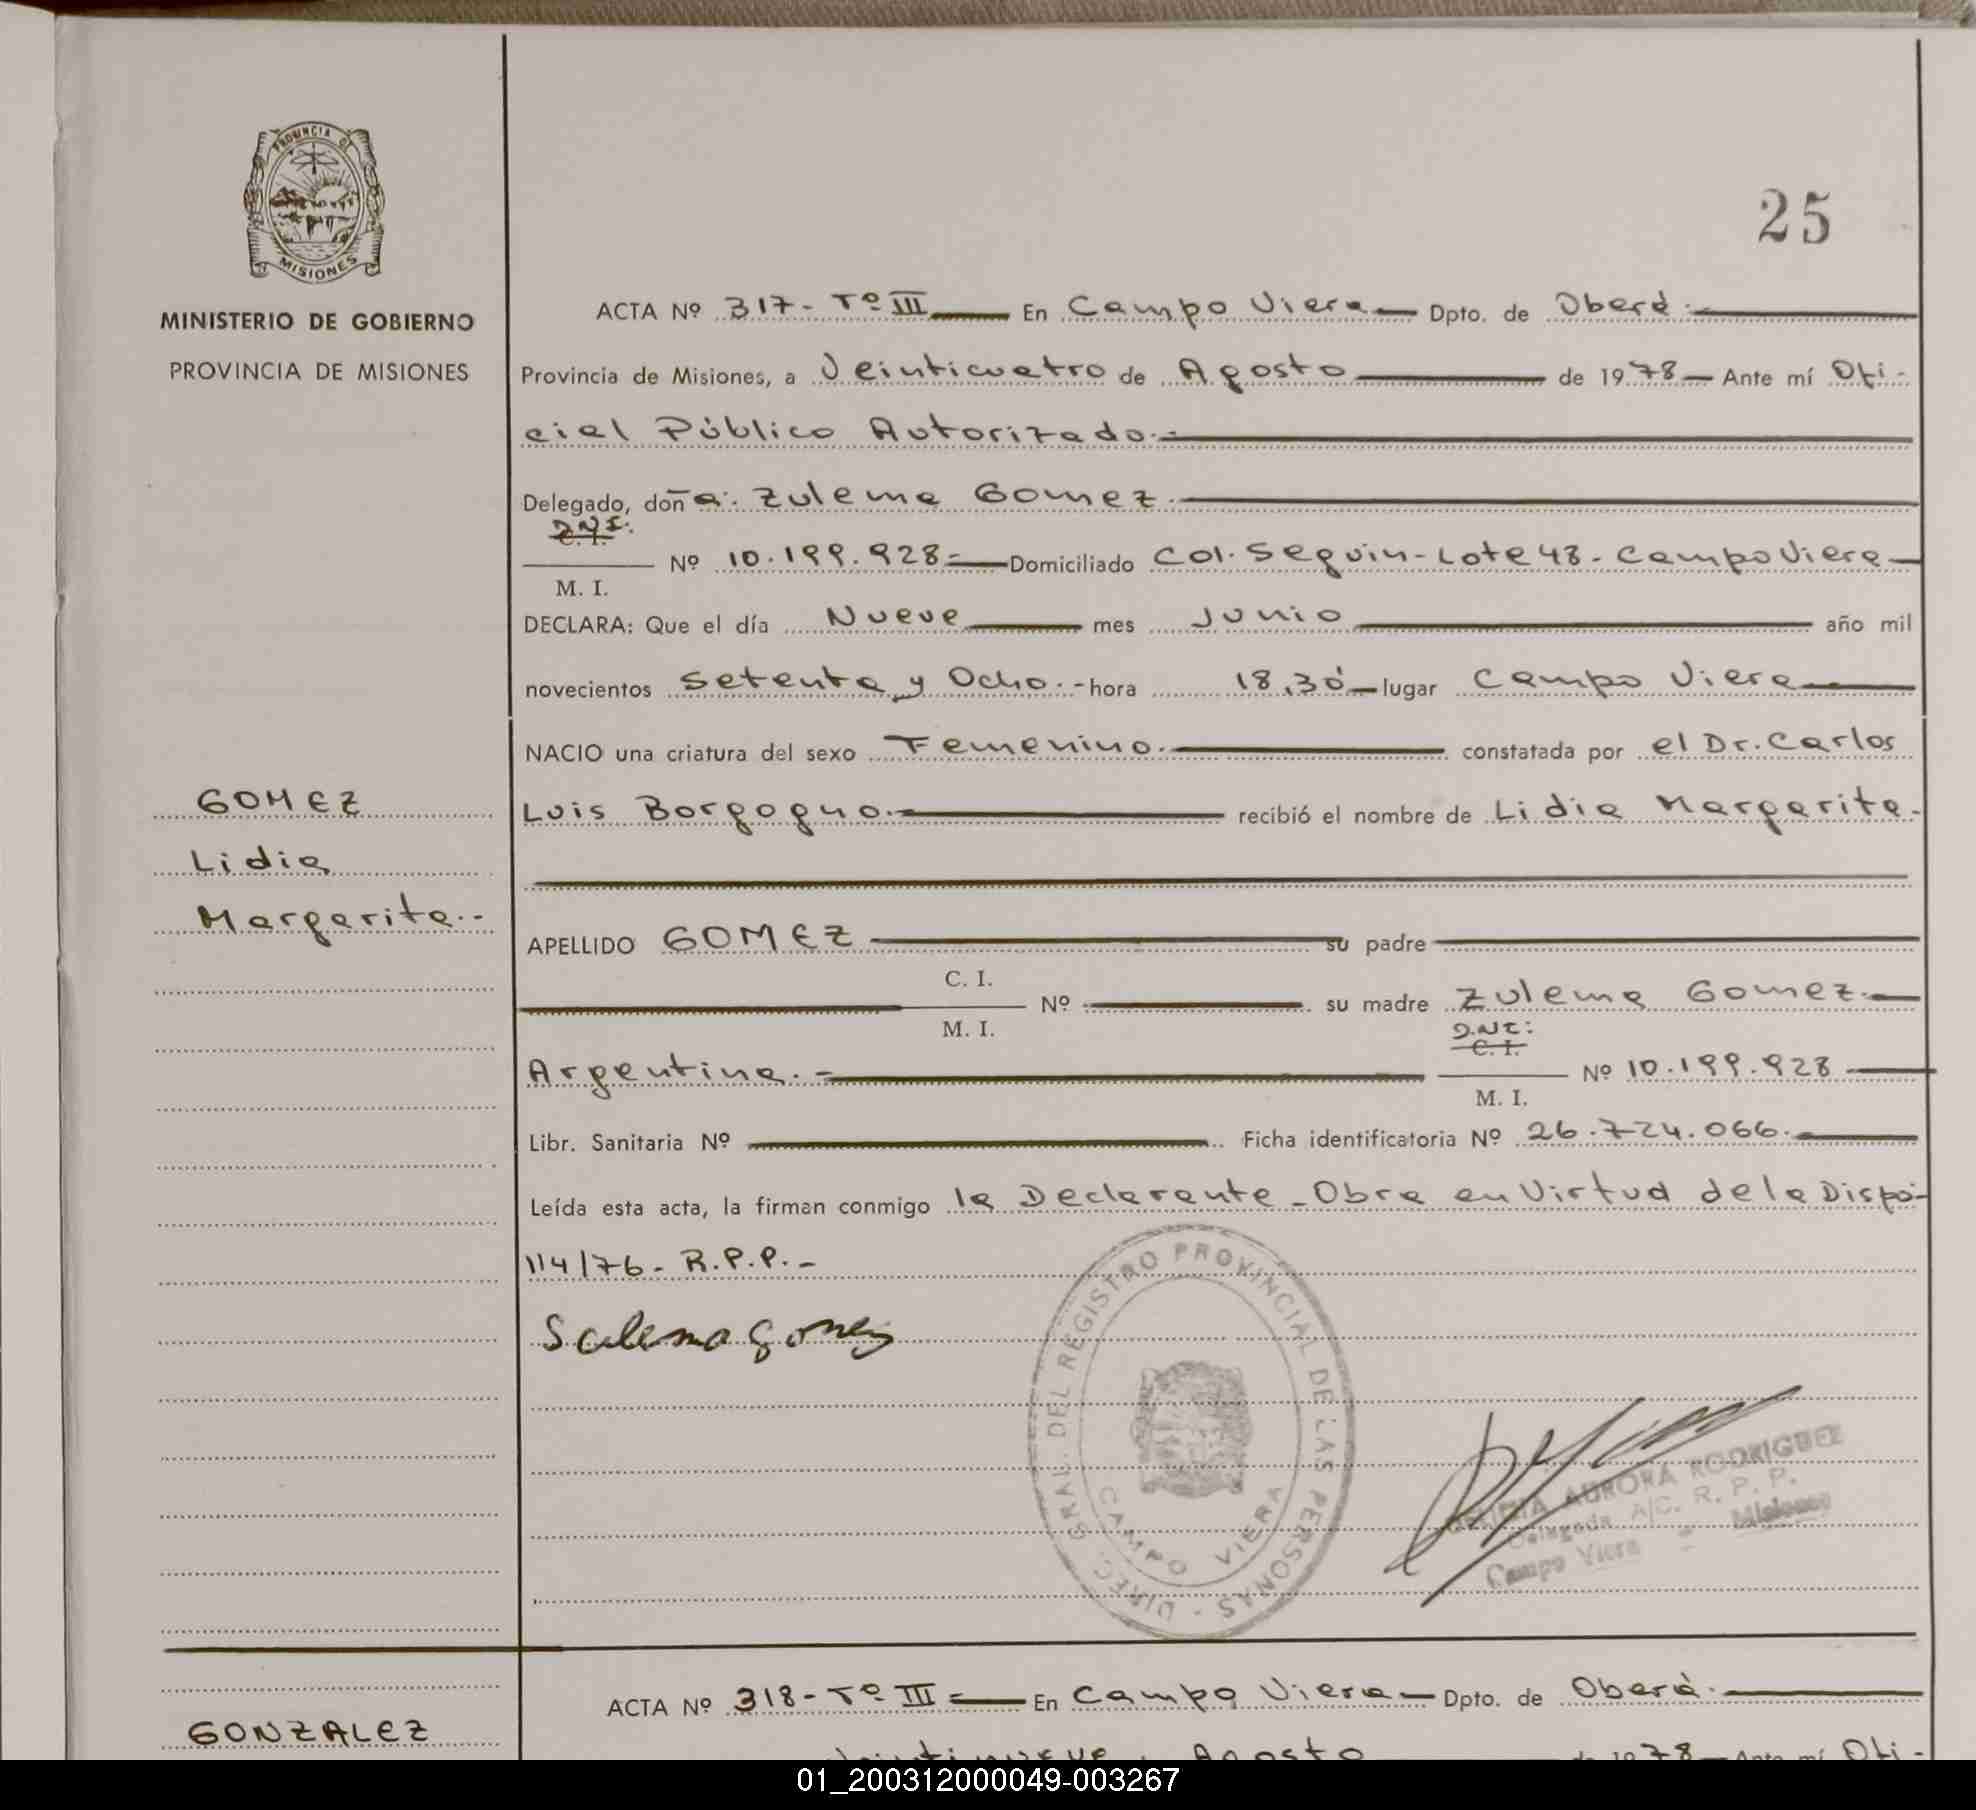 PROVINCIA DE
MISIONES
MINISTERIO DE GOBIERNO
PROVINCIA DE MISIONES
25
ACTA Nº 317- Tº III En Campo Viera Dpto. de Oberá.
Provincia de Misiones, a Veinticuatro de Agosto de 1978 Ante mí Ofi-
cial Público Autorizado.-
Delegado, doña: Zulema Gomez.
D.N.I.
C. I.
Nº 10.199.928- Domiciliado Col. Seguin-Lote 48-Campo Viera
M. I.
DECLARA: Que el día Nueve mes Junio año mil
novecientos Setenta y Ocho.- hora 18,30 lugar Campo Viera
NACIO una criatura del sexo Femenino. constatada por el Dr. Carlos
Luis Borgogno.- recibió el nombre de Lidia Margarita.
GOMEZ
Lidia
Margarita.-
APELLIDO GOMEZ su padre
C. I.
Nº su madre Zulema Gomez.
M. I.
D.N.I:
C. I.
Argentina.- Nº 10.199.928
M. I.
Libr. Sanitaria Nº Ficha identificatoria Nº 26.724.066.
Leída esta acta, la firman conmigo la Declarante-Obra en Virtud de la Dispo.
114/76- R.P.P.-
Sulema Gomez
DIREC. GRAL. DEL REGISTRO PROVINCIAL DE LAS PERSONAS -
CAMPO VIERA
AURORA RODRIGUEZ
Delegada A/C. R. P. P.
Campo Viera - Misiones
ACTA Nº 318- Tº III- En Campo Viera Dpto. de Oberá.
GONZALEZ
Veintinueve Agosto de 1978 Ante mí Ofi-
01_200312000049-003267